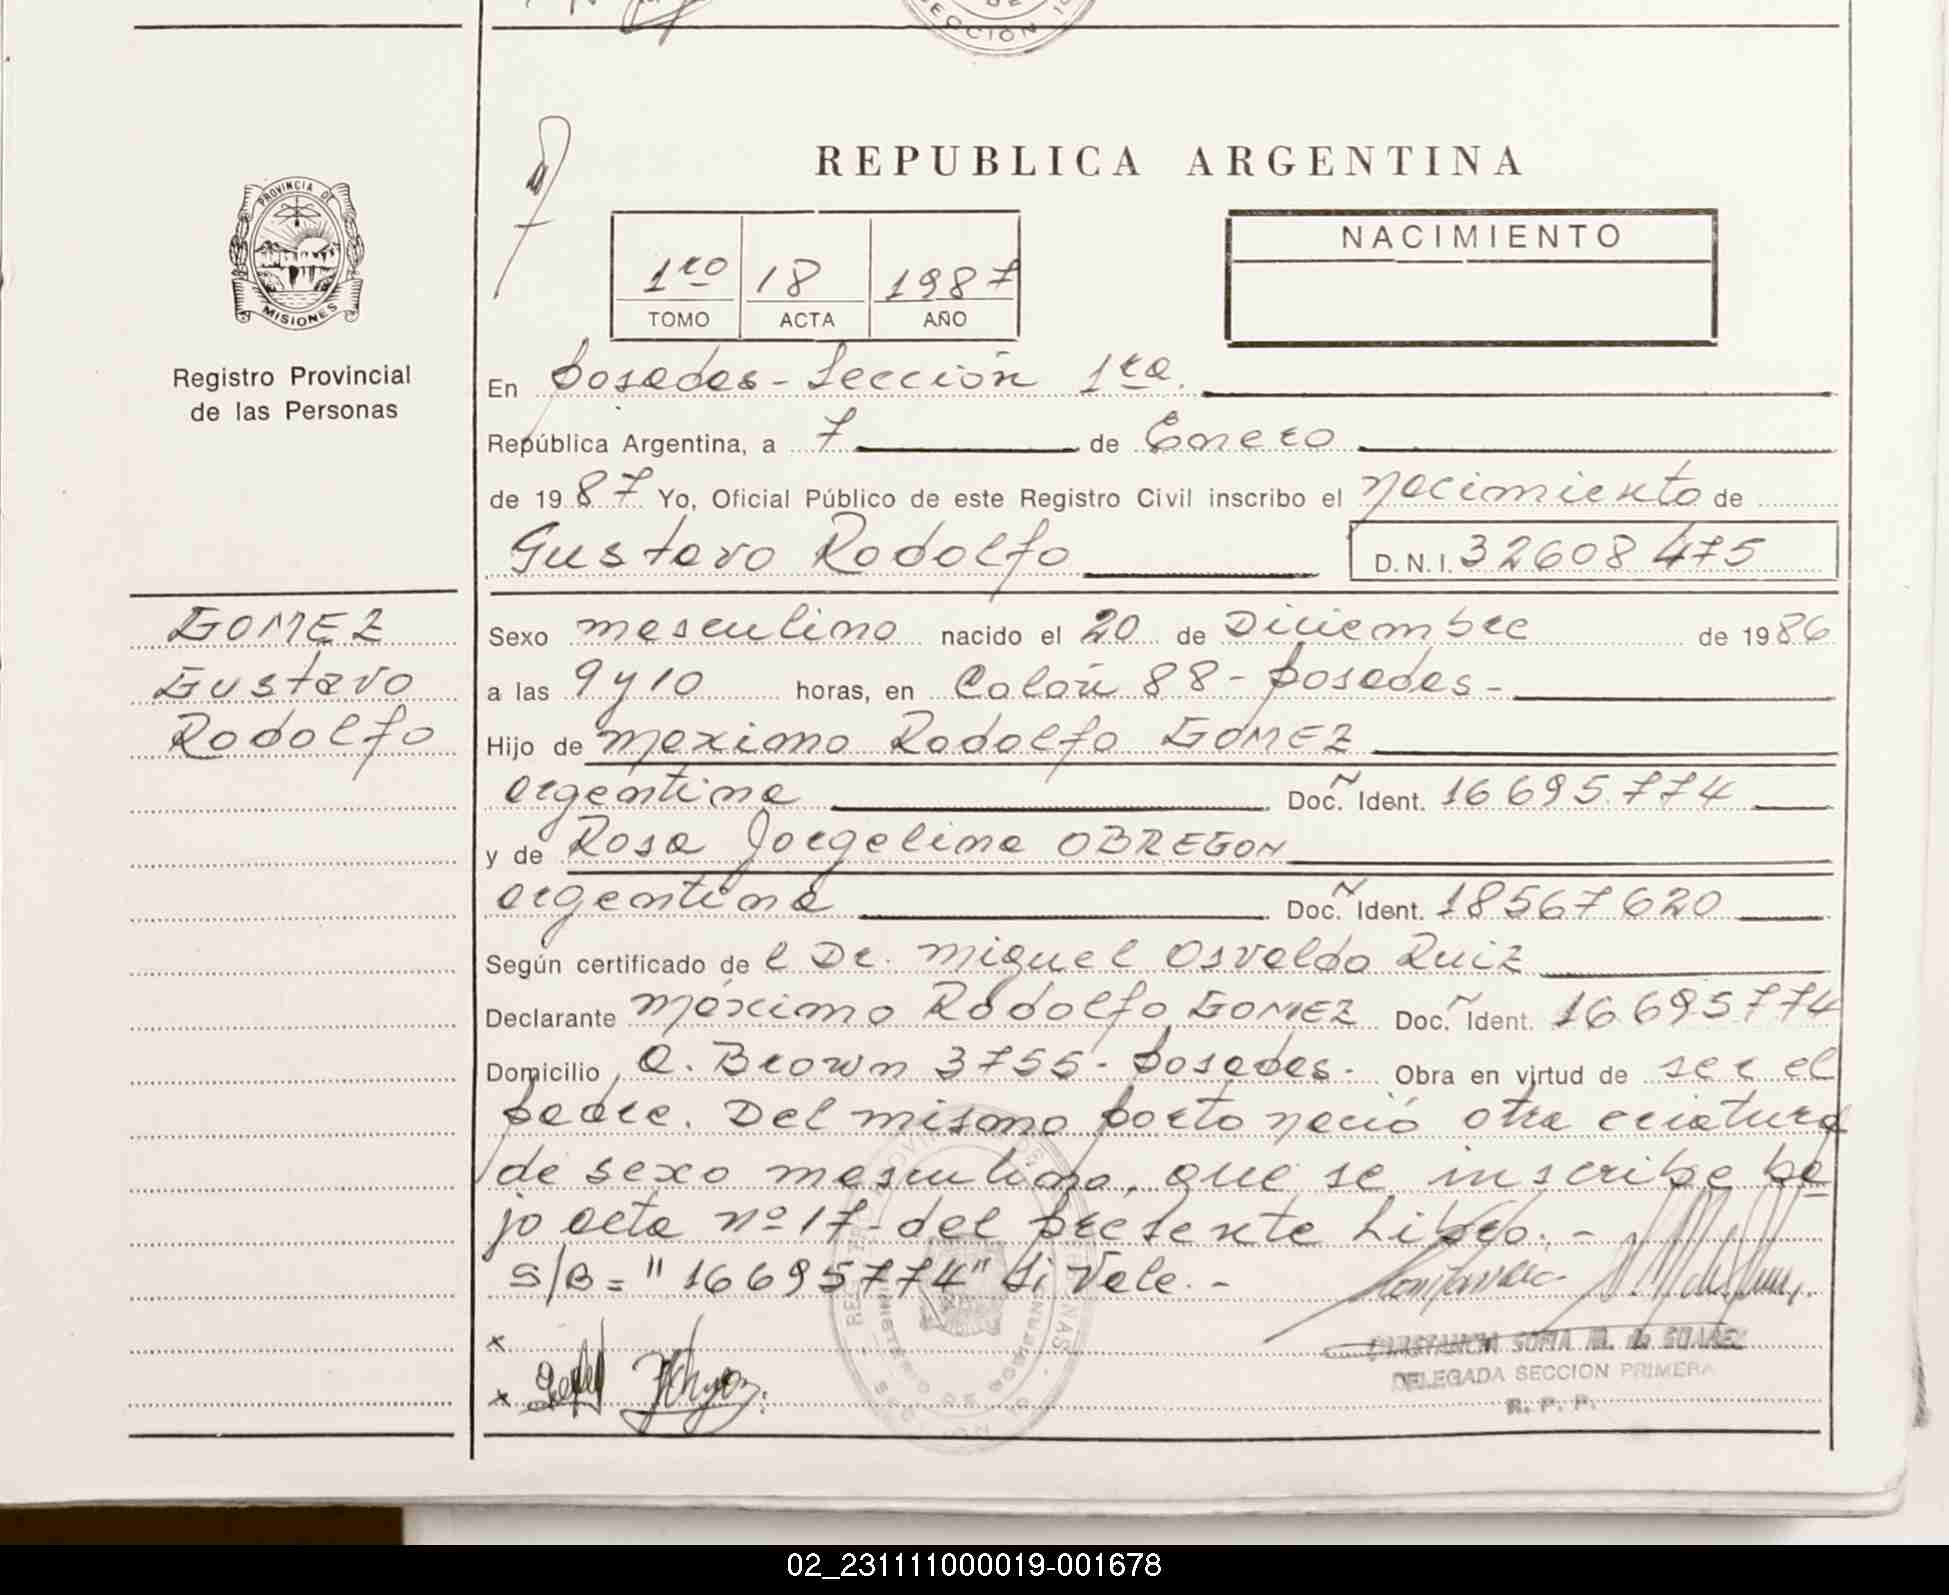 SECCION 1
REPUBLICA ARGENTINA
PROVINCIA DE
MISIONES
Registro Provincial
de las Personas
1ro 18 1987
TOMO ACTA AÑO
NACIMIENTO
En Posadas - Sección 1ra.
República Argentina, a 7 de Enero
de 1987 Yo, Oficial Público de este Registro Civil inscribo el nacimiento de
Gustavo Rodolfo D.N.I. 32608475
GOMEZ
Gustavo
Rodolfo
Sexo masculino nacido el 20 de Diciembre de 1986
a las 9 y 10 horas, en Colón 88 - Posadas -
Hijo de Maximo Rodolfo GOMEZ
argentina Doc. Ident. 16695.774
y de Rosa Jorgelina OBREGON
argentina Doc. Ident. 18567620
Según certificado de l Dr. Miguel Osvaldo Ruiz
Declarante Máximo Rodolfo GOMEZ Doc. Ident. 16695774
Domicilio A. Brown 3755 - Posadas - Obra en virtud de ser el
padre. Del mismo parto nació otra criatura
de sexo masculino, que se inscribe ba-
jo acta nº 17 - del presente Libro. -
S/B = "16695774" Si Vale. -
CONSTANCIA SOFIA M. de SUAREZ
DELEGADA SECCION PRIMERA
R. P. P.
02_231111000019-001678